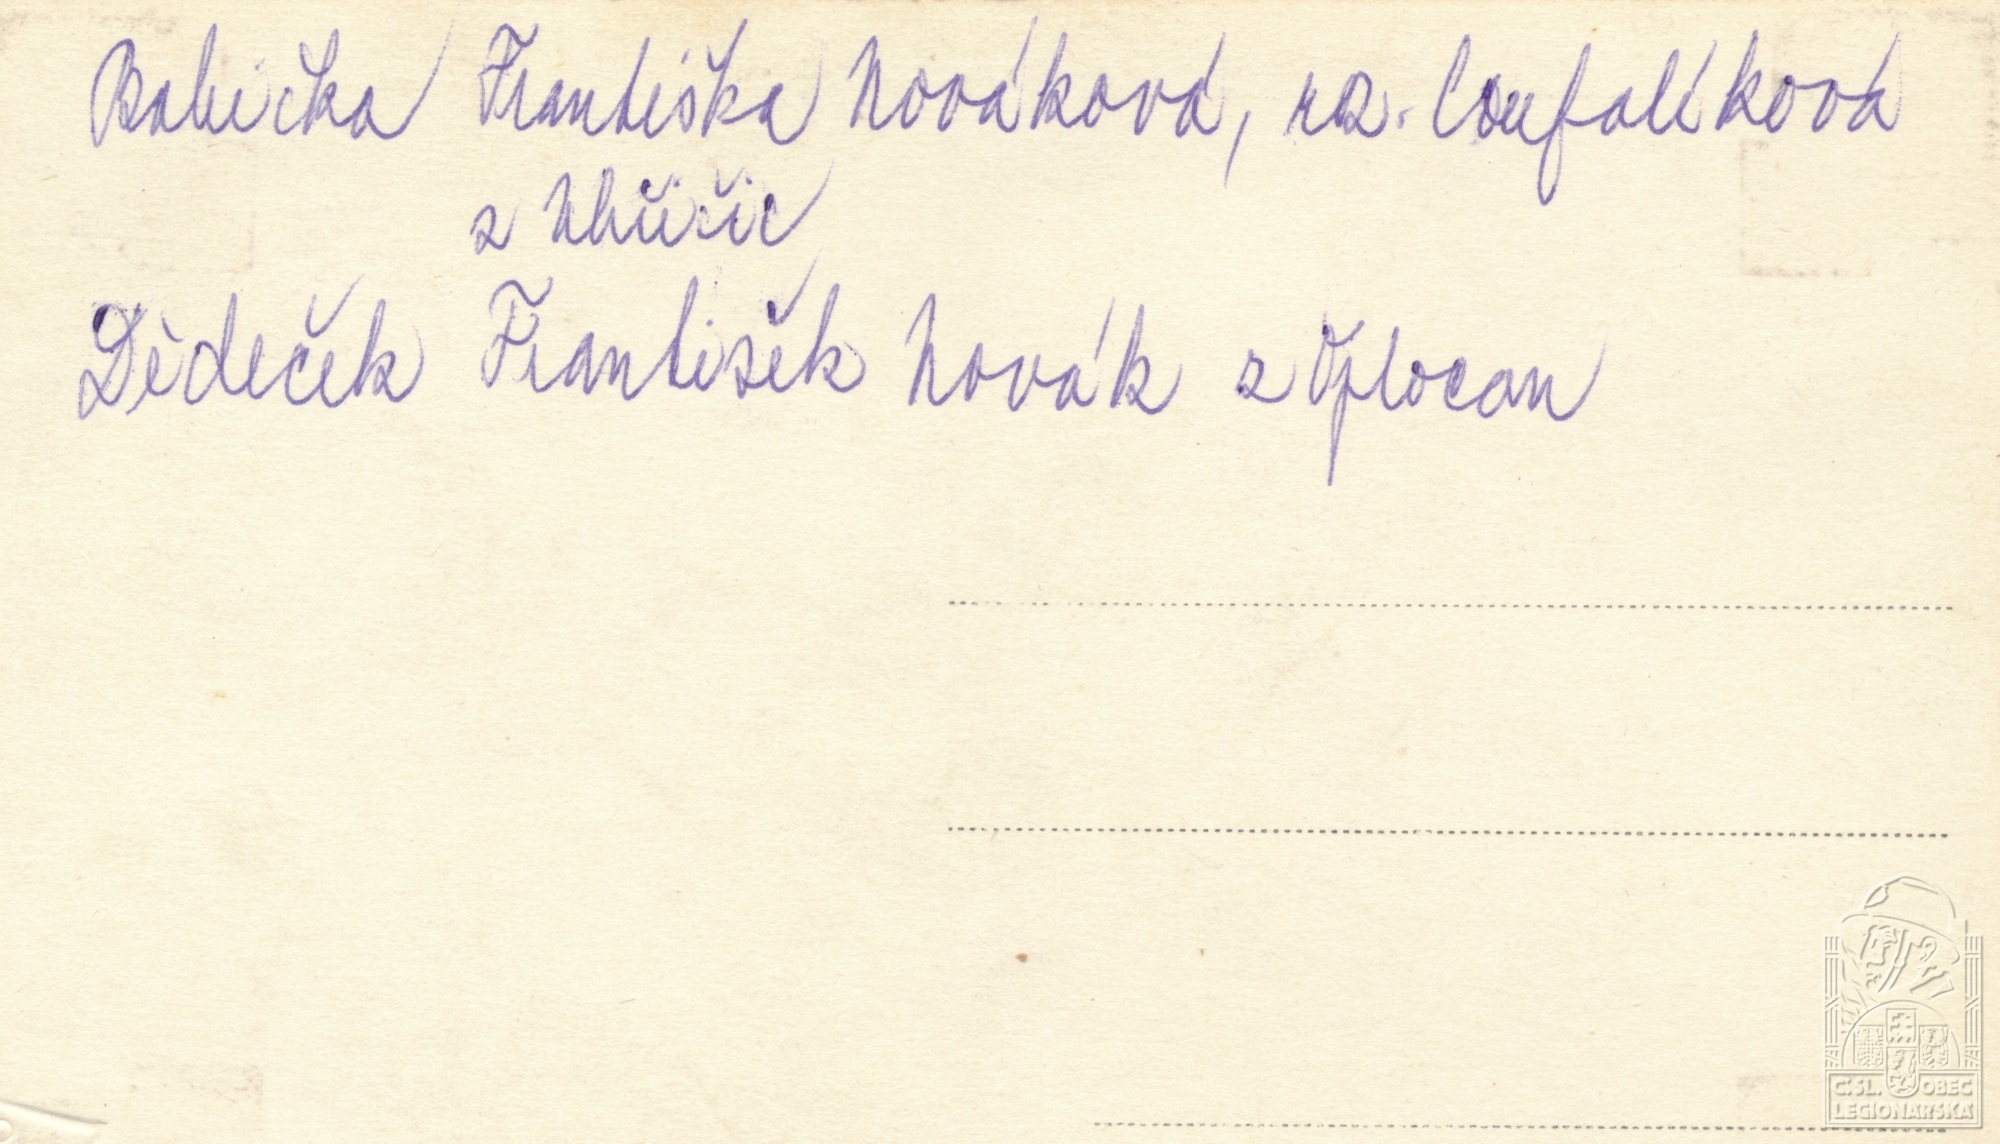 Babička Františka Nováková, roz. Coufalíková
z Uhřičic
Dědeček František Novák z Oplocan
ČSL. OBEC
LEGIONÁŘSKÁ